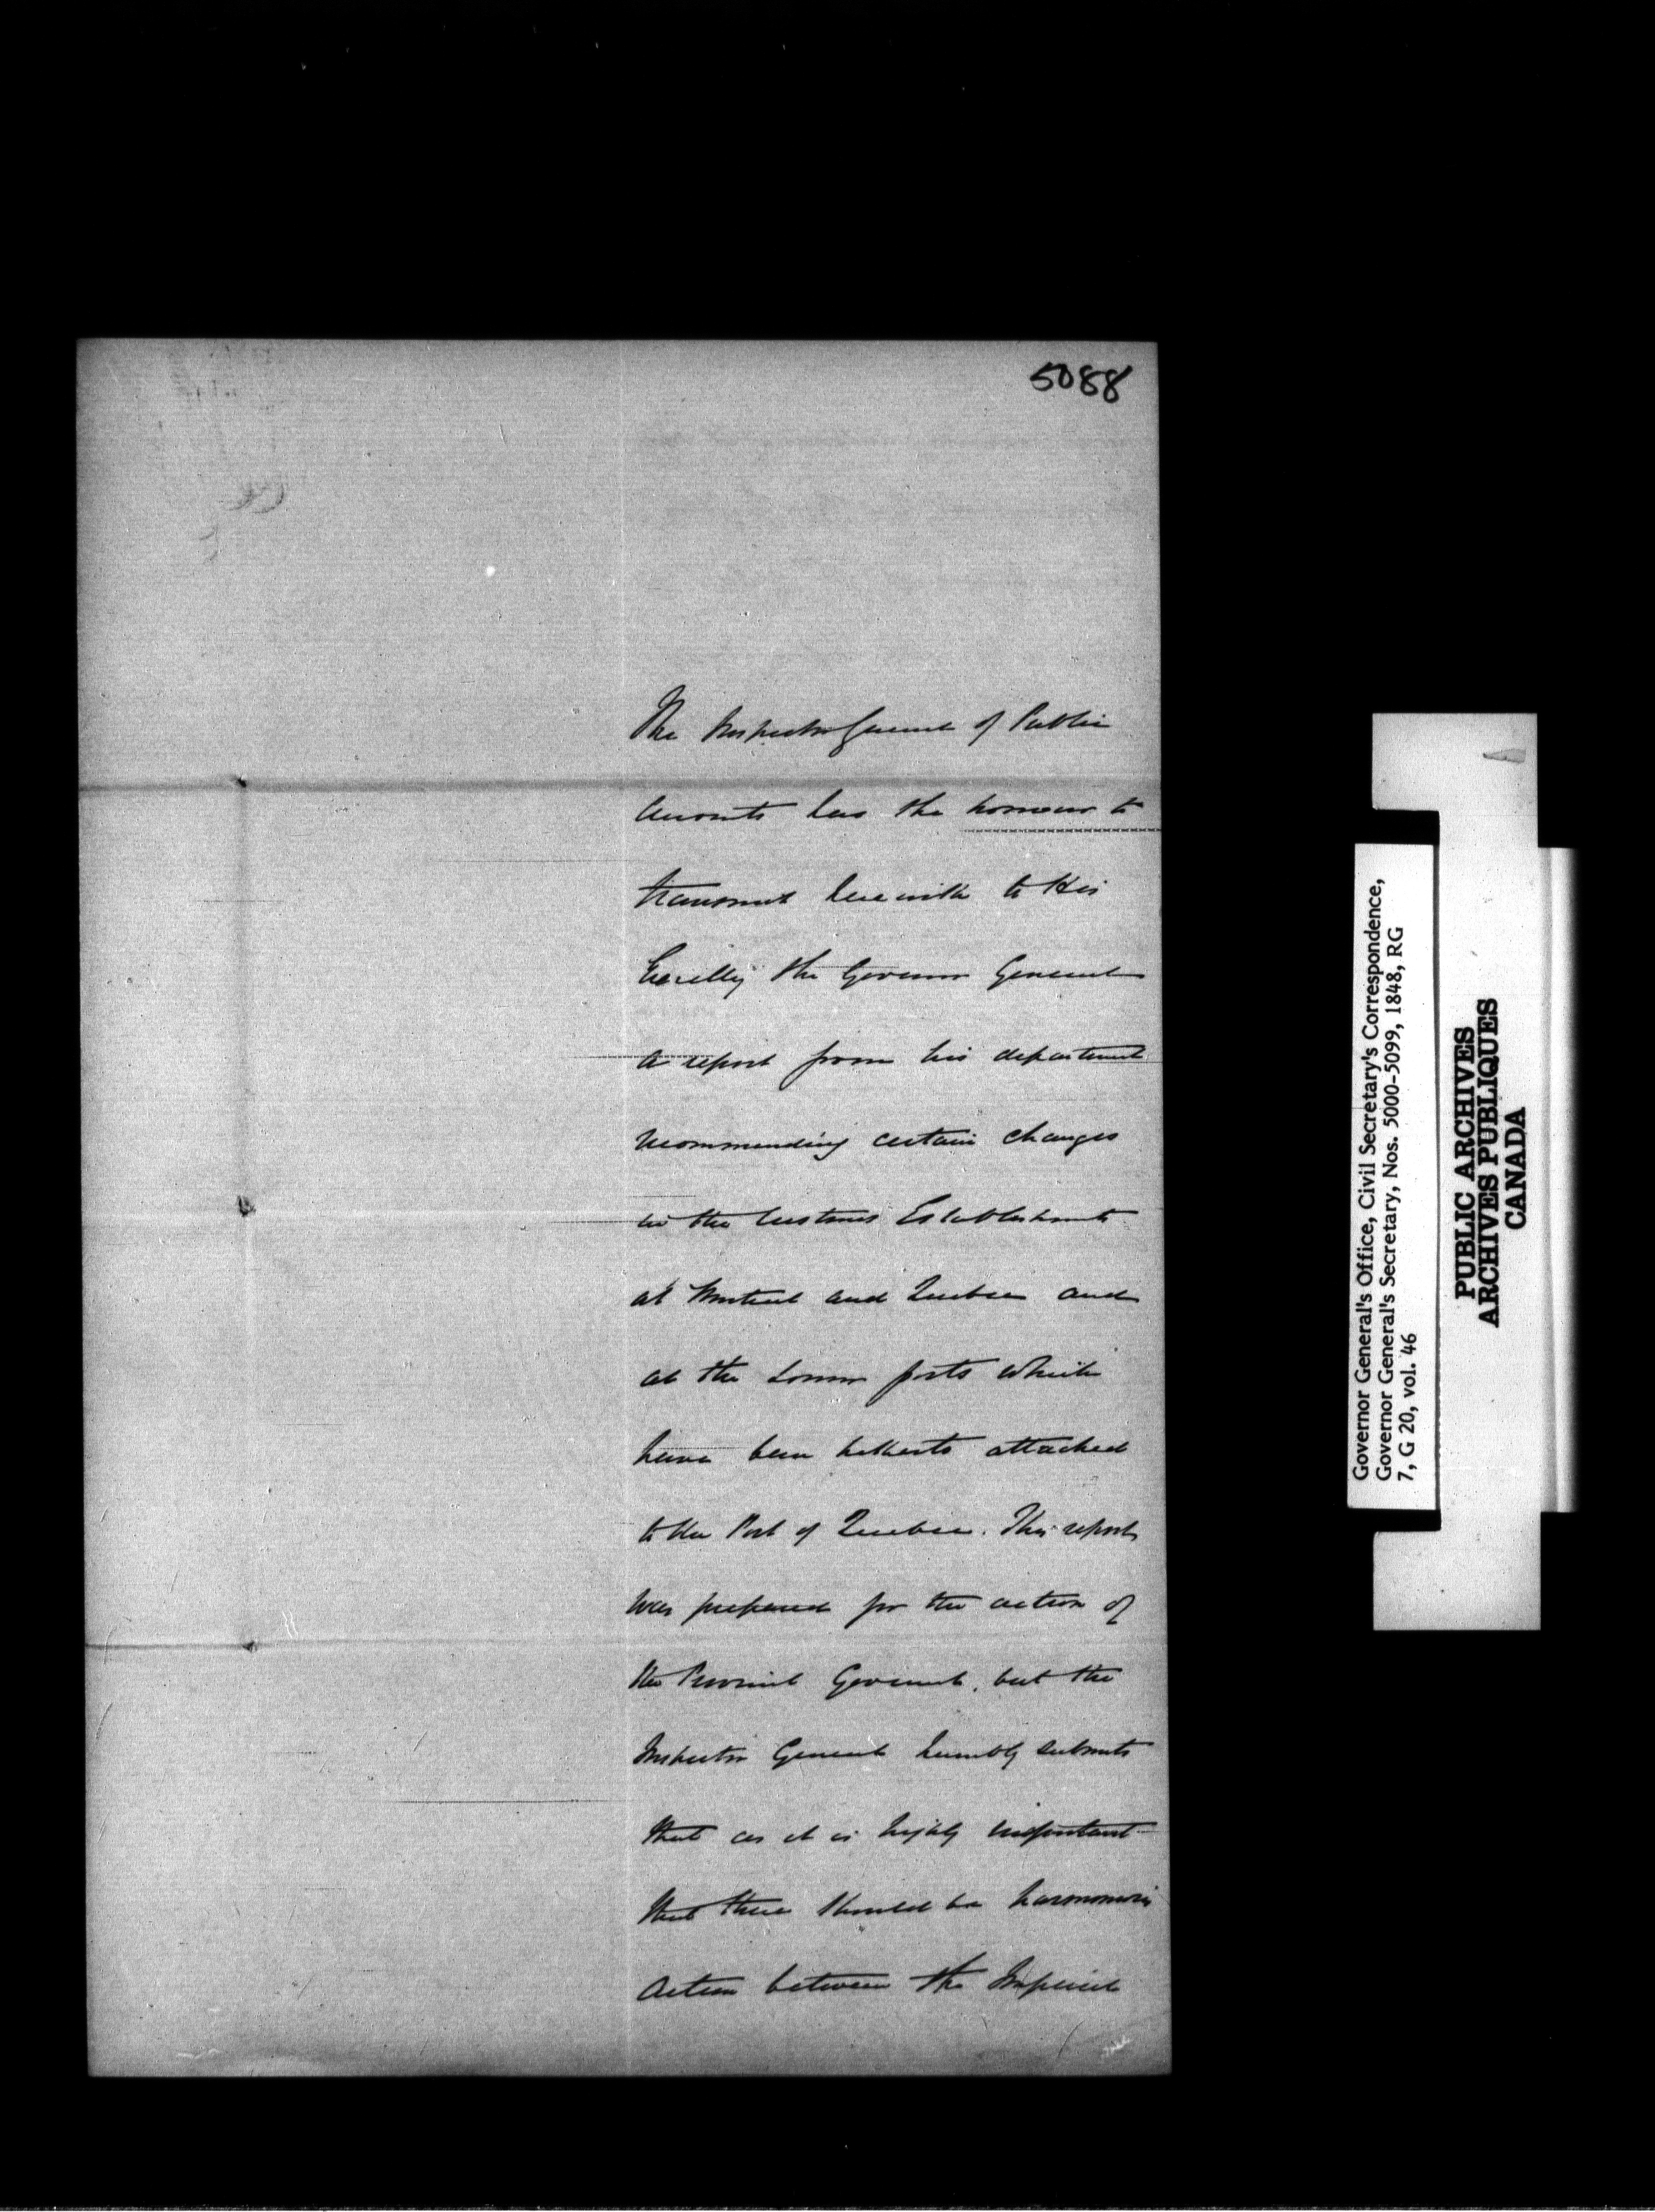 5088
The Inspector General of Public
Accounts has the honour to
transmit herewith to His
Excelly the Governor General
a report from his department
recommending certain changes
in the Customs Establishments
at Montreal and Quebec and
at the Lower ports which
have been hitherto attached
to the Port of Quebec. This report
was prepared for the action of
the Provincial Government, but the
Inspector General humbly submits
that as it is highly important
that there should be harmonious
action between the Imperial
Governor General's Office, Civil Secretary's Correspondence,
Governor General's Secretary, Nos. 5000-5099, 1848, RG
7, G 20, vol. 46
PUBLIC ARCHIVES
ARCHIVES PUBLIQUES
CANADA